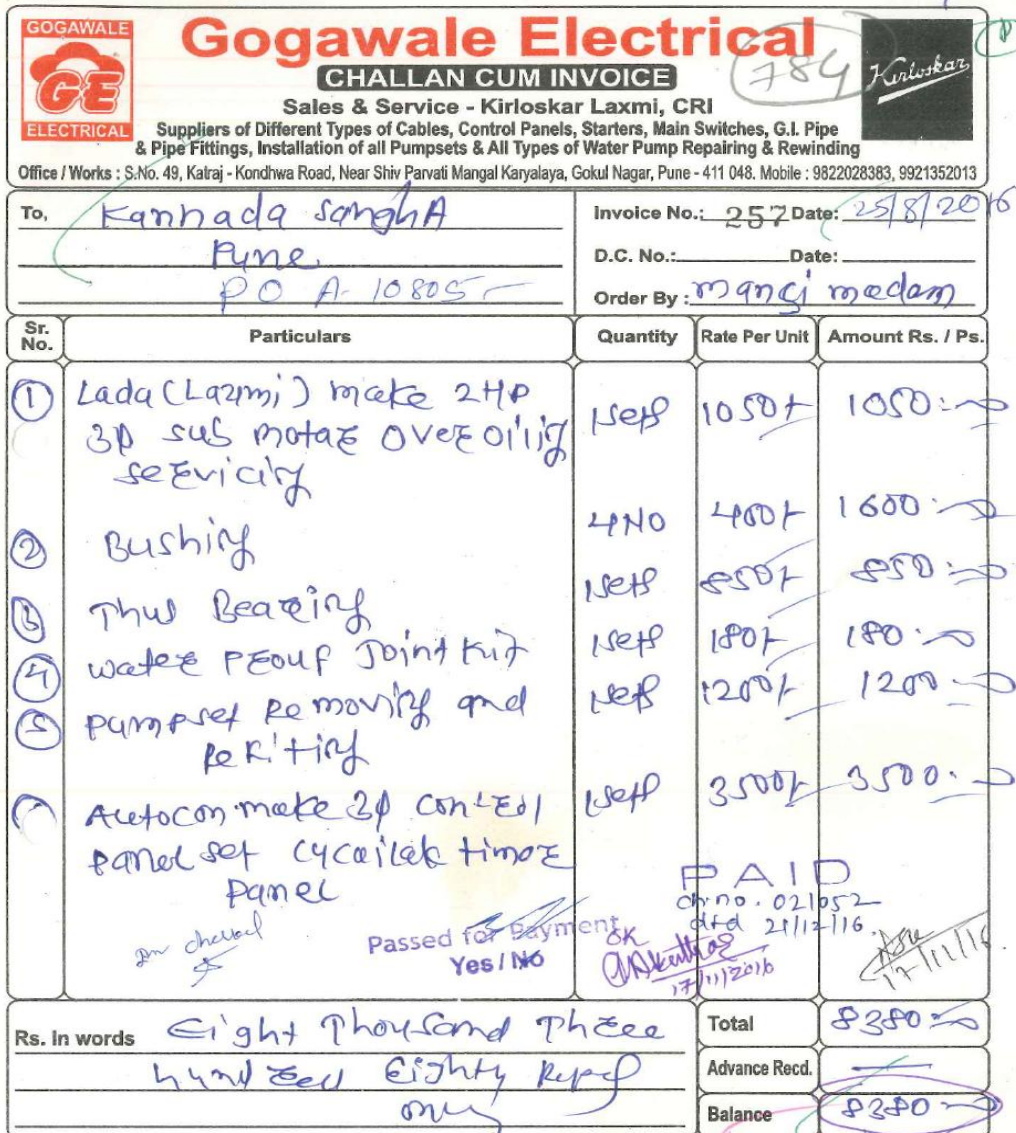 GOGAWALE
GE
ELECTRICAL
Gogawale Electrical
784
Kirloskar
CHALLAN CUM INVOICE
Sales & Service - Kirloskar Laxmi, CRI
Suppliers of Different Types of Cables, Control Panels, Starters, Main Switches, G.I. Pipe
& Pipe Fittings, Installation of all Pumpsets & All Types of Water Pump Repairing & Rewinding
Office / Works : S.No. 49, Katraj - Kondhwa Road, Near Shiv Parvati Mangal Karyalaya, Gokul Nagar, Pune - 411 048. Mobile : 9822028383, 9921352013
To, Kannada sanghA
Pune
PO A-10805
Invoice No.: 257 Date: 25/8/2016
D.C. No.: Date:
Order By : mangi madam
Sr. No. Particulars Quantity Rate Per Unit Amount Rs. / Ps.
1 Lada (Laxmi) make 2HP 1set 1050/- 1050:00
3φ sub motar overoilig
servicing
2 Bushing 4NO 400/- 1600:00
3 Thus Bearing 1set 850/- 850:00
4 water prouf Joint kit 1set 180/- 180:00
5 pumpset Removing and 1set 1200/- 1200:00
Refiting
Autocon make 3φ control 1set 3500/- 3500:00
panel set cycailak timor
panel
PAID
ch.no. 021052
dtd 21/12/16
Passed for Payment
Yes / No
OK
17/11/2016
17/11/16
Rs. In words Eight Thousand Three
hundred Eighty Rupees
only
Total 8380:00
Advance Recd. —
Balance 8380:00